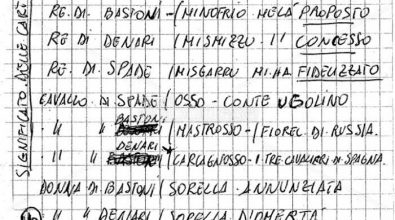 SIGNIFICATO DELLE CARTE
RE. DI. BASTONI - (MINOFRIO MELA' PROPOSTO
RE DI DENARI / MISMIZZU. I' CONCESSO
RE. DI. SPADE / MISGARRU MI.HA FIDELIZZATO
CAVALLO DI SPADE / OSSO - CONTE UGOLINO
" " BASTONI / MASTROSSO - I FIOREL. DI RUSSIA.
" " DENARI / CARCAGNOSSO - I TRE CAVALIERI DI SPAGNA.
DONNA DI. BASTONI / SORELLA ANNUNZIATA
" " DENIARI / SORELLA D'OMERTA'